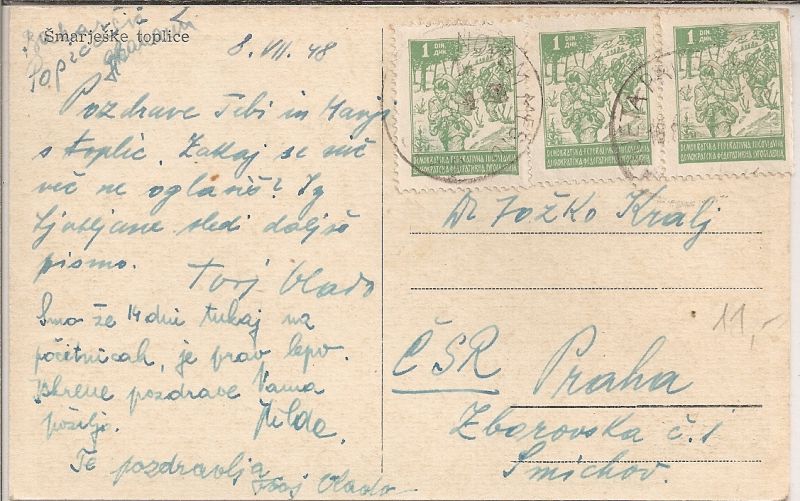 Šmarješke toplice
8. VII. 48
Pozdrave Tebi in Manji
s toplic. Zakaj se nič
več ne oglasiš? Iz
Ljubljane sledi daljše
pismo.
Tvoj Vlado
Smo že 14 dni tukaj na
počitnicah, je prav lepo.
Iskrene pozdrave Vama
pošilja Hilda.
Te pozdravlja
Tvoj Vlado
1 DIN. ДИН.
DEMOKRATSKA FEDERATIVNA JUGOSLAVIJA
ДЕМОКРАТСКА ФЕДЕРАТИВНА ЈУГОСЛАВИЈА
1 DIN. ДИН.
DEMOKRATSKA FEDERATIVNA JUGOSLAVIJA
ДЕМОКРАТСКА ФЕДЕРАТИВНА ЈУГОСЛАВИЈА
1 DIN. ДИН.
DEMOKRATSKA FEDERATIVNA JUGOSLAVIJA
ДЕМОКРАТСКА ФЕДЕРАТИВНА ЈУГОСЛАВИЈА
Dr Jožko Kralj
ČSR Praha
Zborovska č. 1
Smichov.
11,-